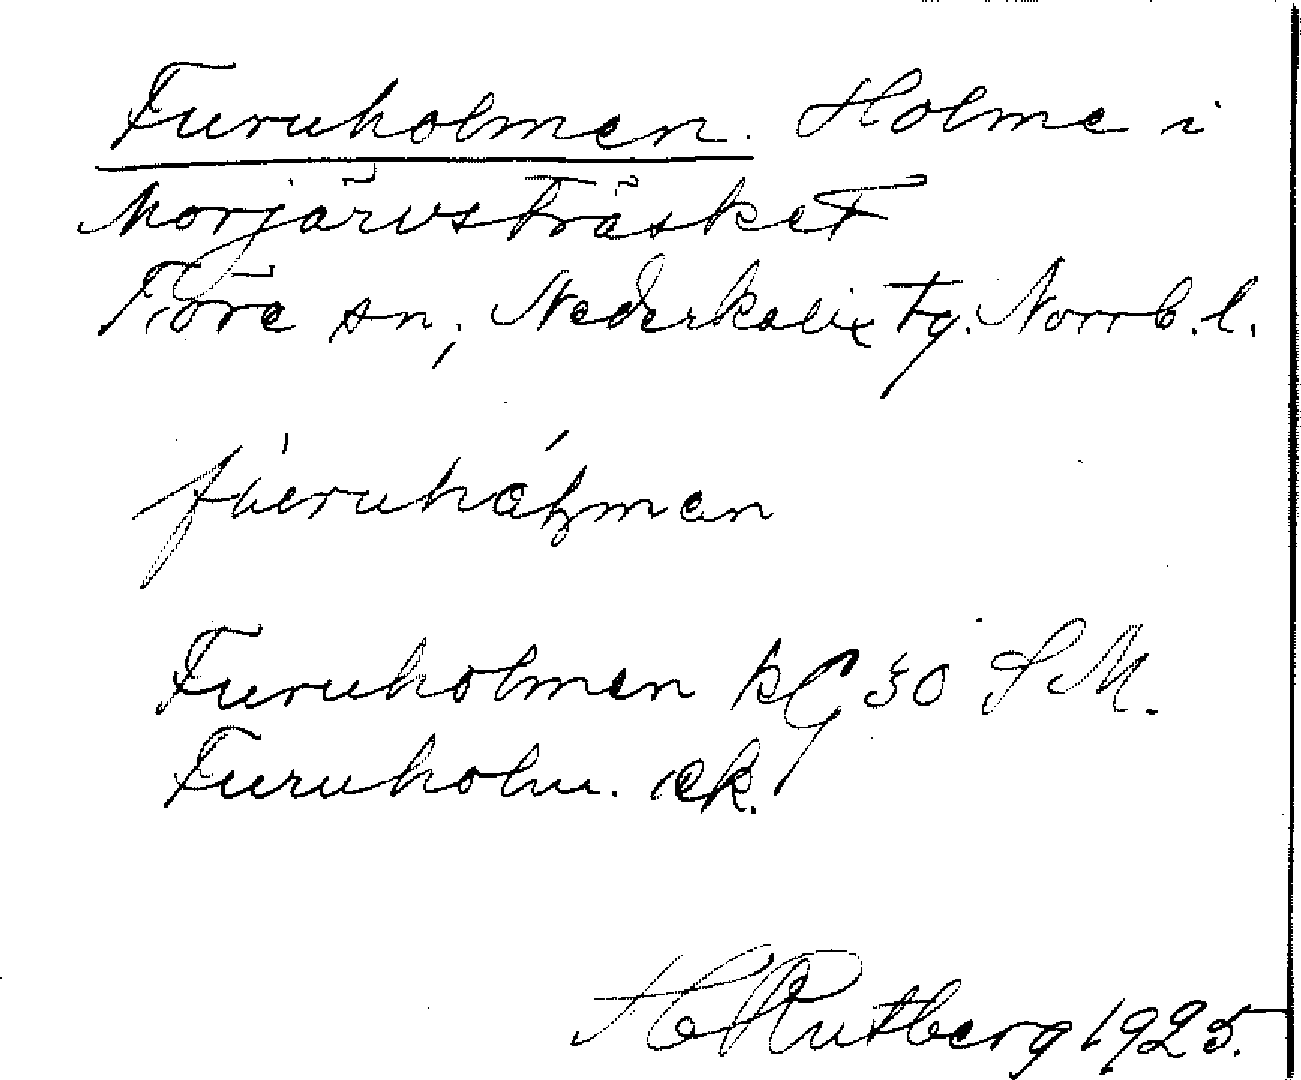 Furuholmen. Holme i
Morjärvsträsket
Töre sn, Nederkalix tg. Norrb. l.
Furuholmen kG 30 SM.
Furuholm. ek.
H Rutberg 1925.